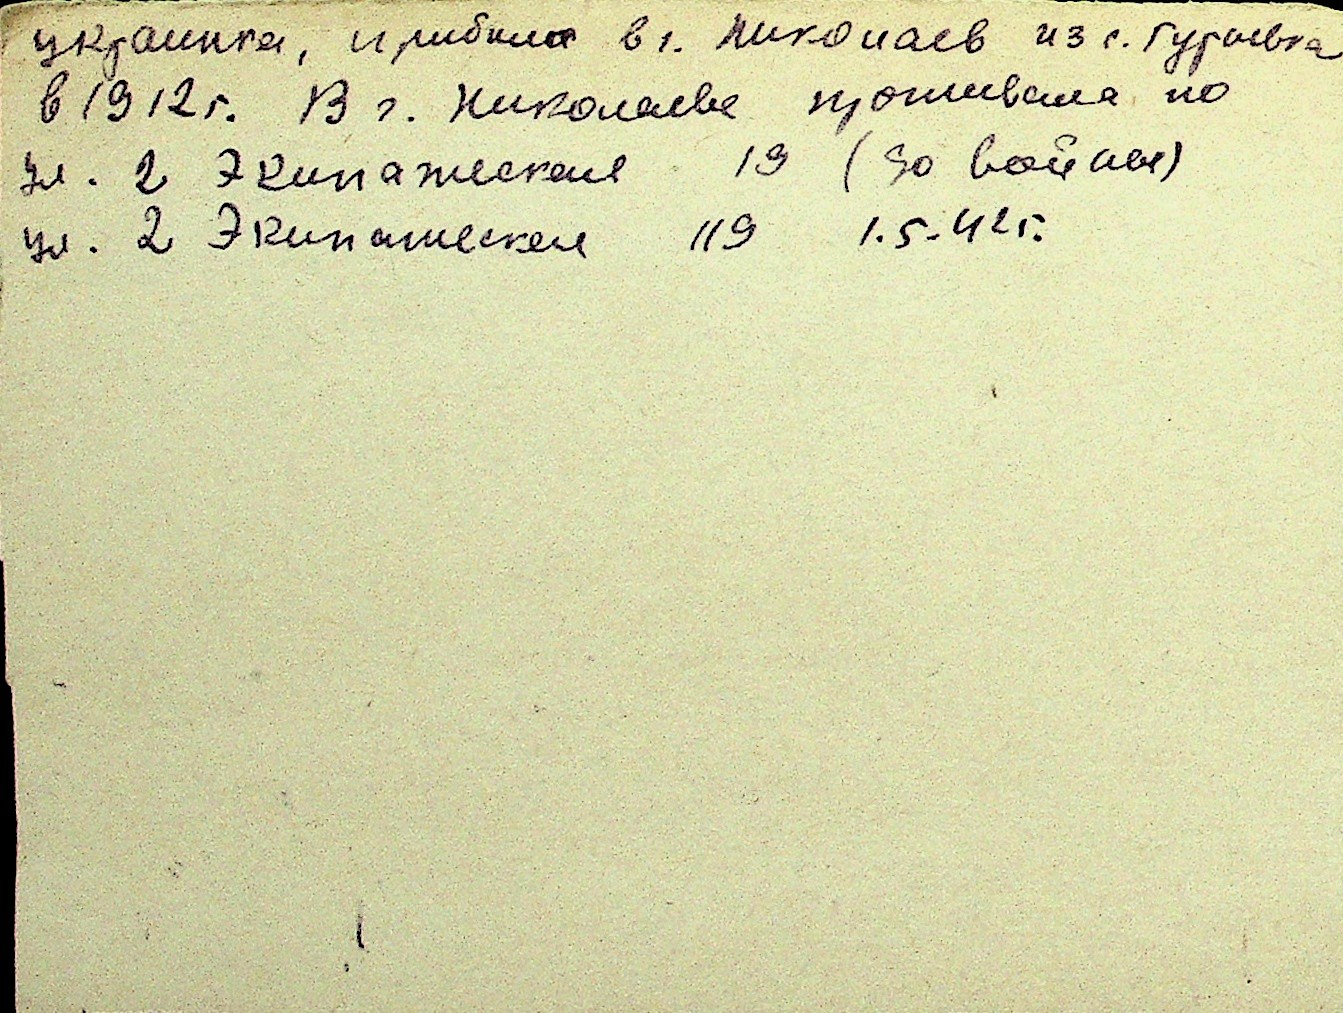 украинка, прибыла в г. Николаев из с. Гурьевка
в 1912г. В г. Николаеве проживала по
ул. 2 Экипажеская 19 (до войны)
ул. 2 Экипажеская 119 1.5.42г.